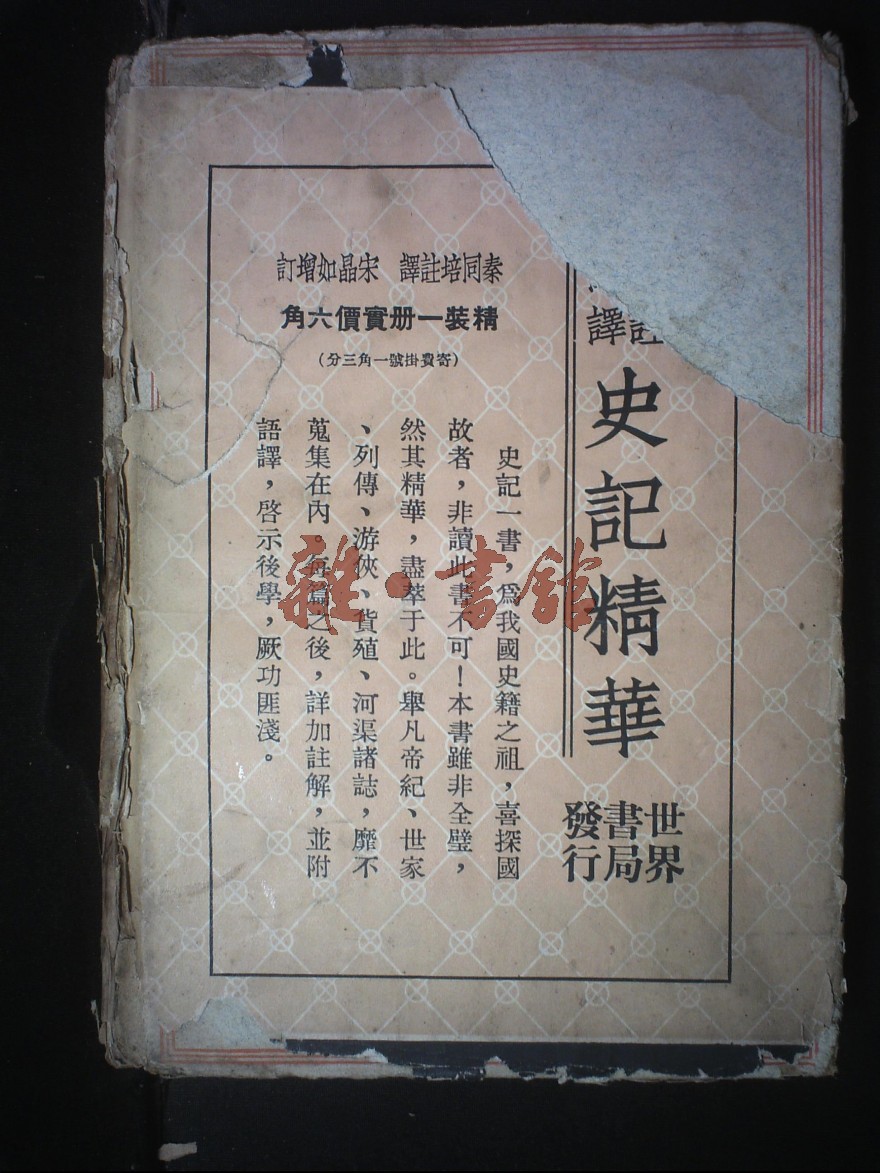 譯註
史記精華
世界書局發行
秦同培註譯 宋晶如增訂
精裝一册實價六角
(寄費掛號一角三分)
史記一書，爲我國史籍之祖，喜探國
故者，非讀此書不可！本書雖非全璧，
然其精華，盡萃于此。舉凡帝紀、世家
、列傳、游俠、貨殖、河渠諸誌，靡不
蒐集在內。每篇之後，詳加註解，並附
語譯，啓示後學，厥功匪淺。
雜·書館